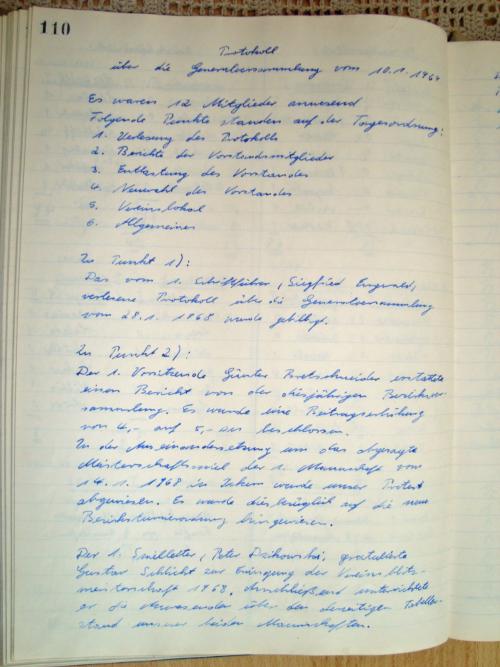 110
Protokoll
über die Generalversammlung vom 10.1.1969
Es waren 12 Mitglieder anwesend
Folgende Punkte standen auf der Tagesordnung:
1. Verlesung des Protokolls
2. Berichte der Vorstandsmitglieder
3. Entlastung des Vorstandes
4. Neuwahl des Vorstandes
5. Vereinslokal
6. Allgemeines
Zu Punkt 1):
Das vom 1. Schriftführer, Siegfried
verlesene Protokoll über die Generalversammlung
vom 28.1.1968 wurde gebilligt.
Zu Punkt 2):
Der 1. Vorsitzende Günter Bretschneider erstattete
einen Bericht von der diesjährigen Bezirksver-
sammlung. Es wurde eine Beitragserhöhung
von 4,- auf 5,- DM beschlossen.
In der Auseinandersetzung um das abgesagte
Meisterschaftsspiel der 1. Mannschaft vom
14.1.1968 in wurde unser Protest
abgewiesen. Es wurde diesbezüglich auf die neue
Bezirksturnierordnung hingewiesen.
Der 1. Spielleiter, Peter gratulierte
Gustav Schlicht zur Erringung der Vereinsblitz-
meisterschaft 1968. Anschließend unterrichtete
er die Anwesenden über den derzeitigen Tabellen-
stand unserer beiden Mannschaften.